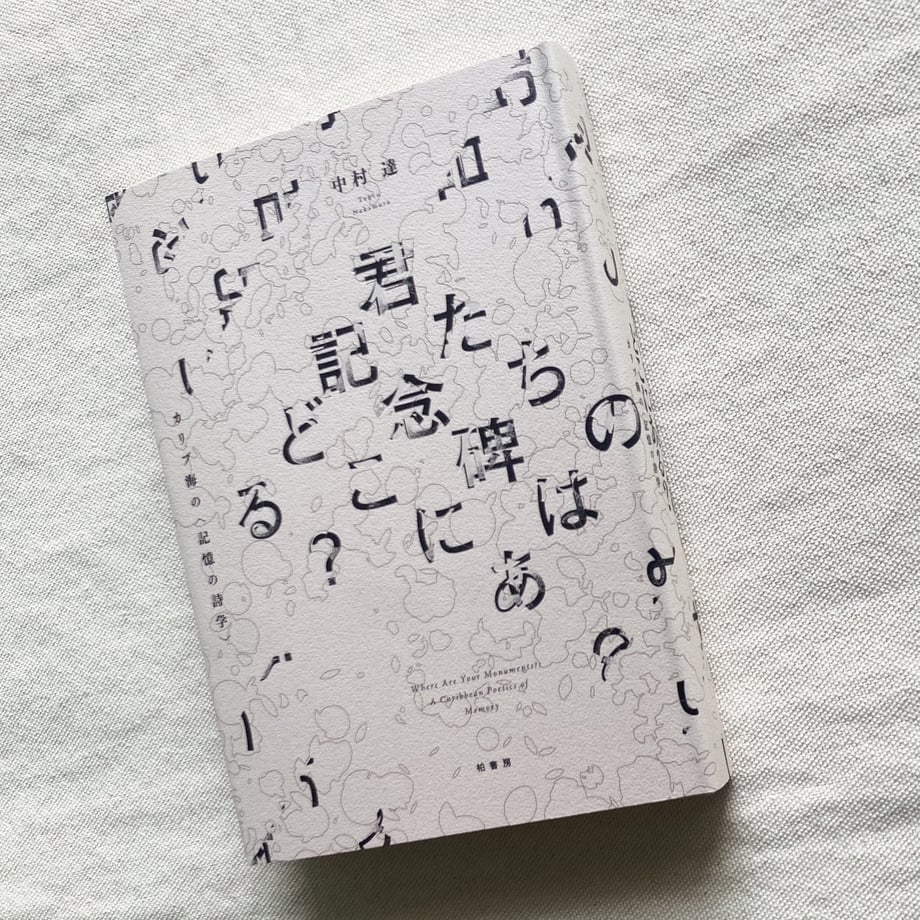 中村 達
Nakamura
君たちの
記念碑は
どこにあ
る?
カリブ海の〈記憶の詩学〉
Where Are Your Monuments?
A Caribbean Poetics of
Memory
柏書房